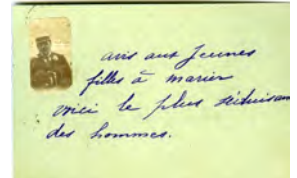 avis aux Jeunes
filles à marier
voici le plus séduisant
des hommes.